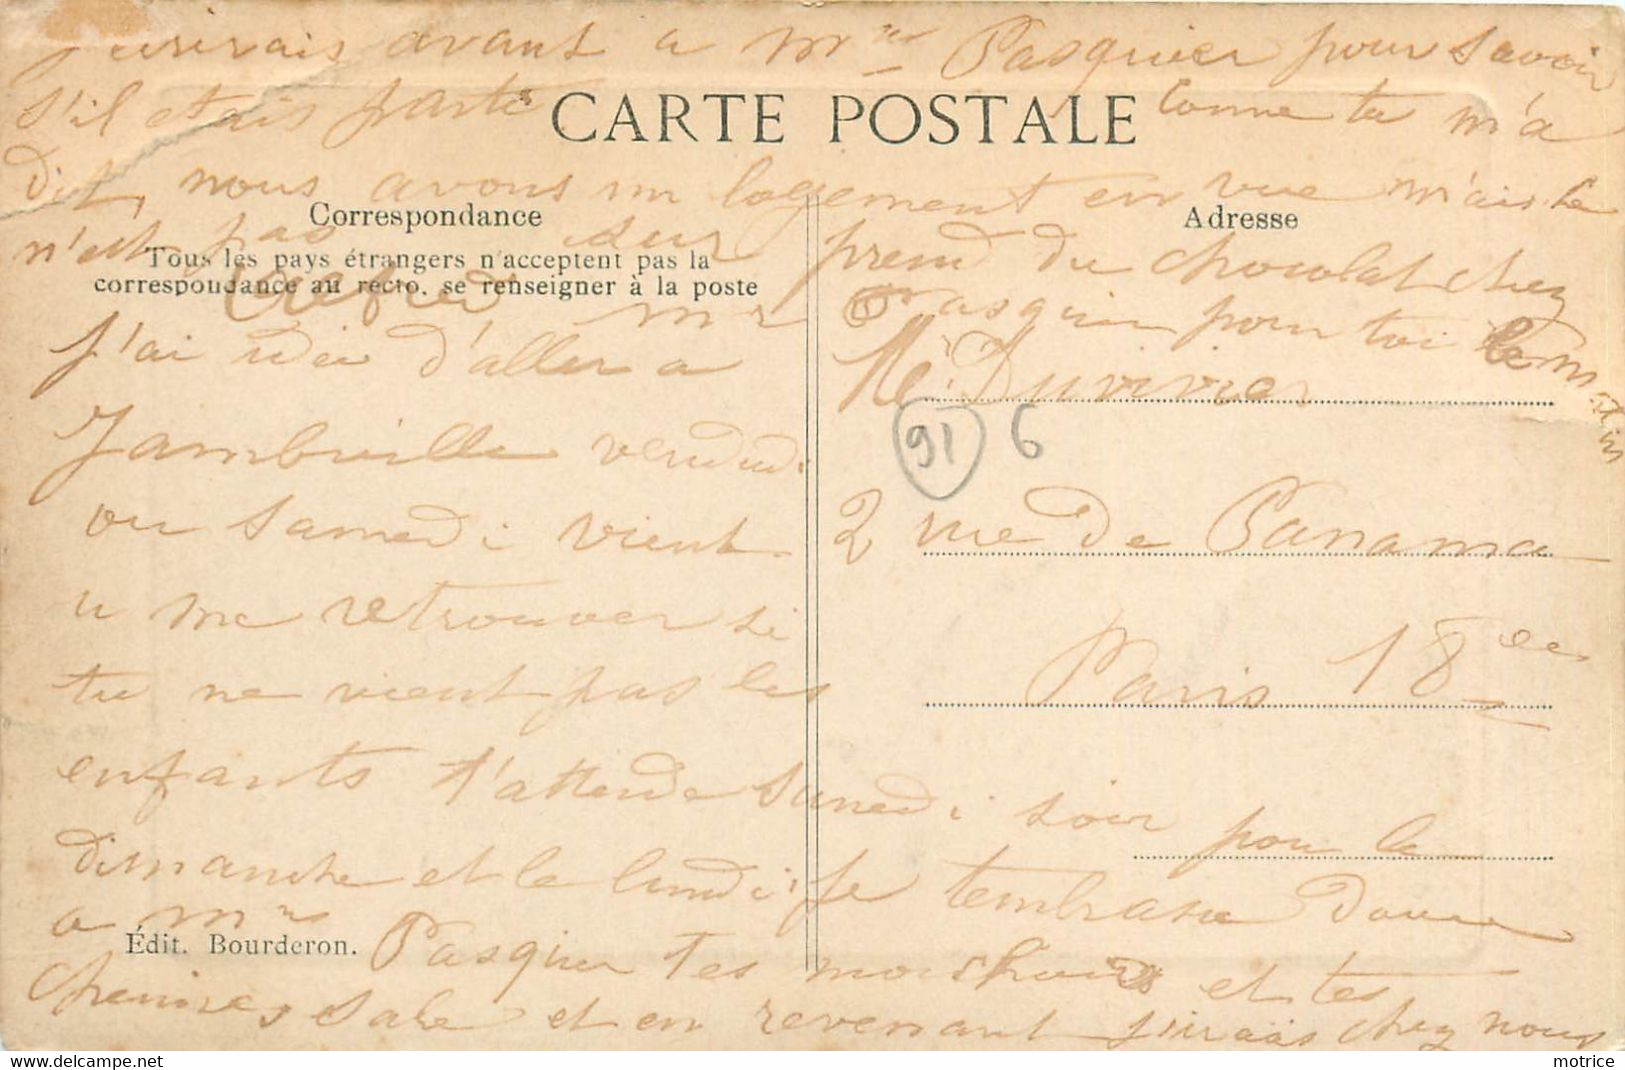 j'écrirais avant a Mme Pasquier pour savoir
s'il etais parti
CARTE POSTALE
Comme tu m'a
dit, nous avons un logement en vue mais ce
n'est pas sur
Correspondance
Tous les pays étrangers n'acceptent pas la
correspondance au recto. se renseigner à la poste
Adresse
prend du chocolat chez
Mr Pasquier pour toi le matin
J'ai idée d'aller a
Jambville vendredi
ou Samedi vient
u me retrouver si
tu ne vient pas les
enfants t'attende Samedi soir pour le
dimanche et le lundi, je tembrasse donne
a Mme Pasquier tes mouchoirs et tes
chemises sale et en revenant j'irais chez nous
Mr Duvivier
91 6
2 rue de Panama
Paris 18ee
Édit. Bourderon.
motrice